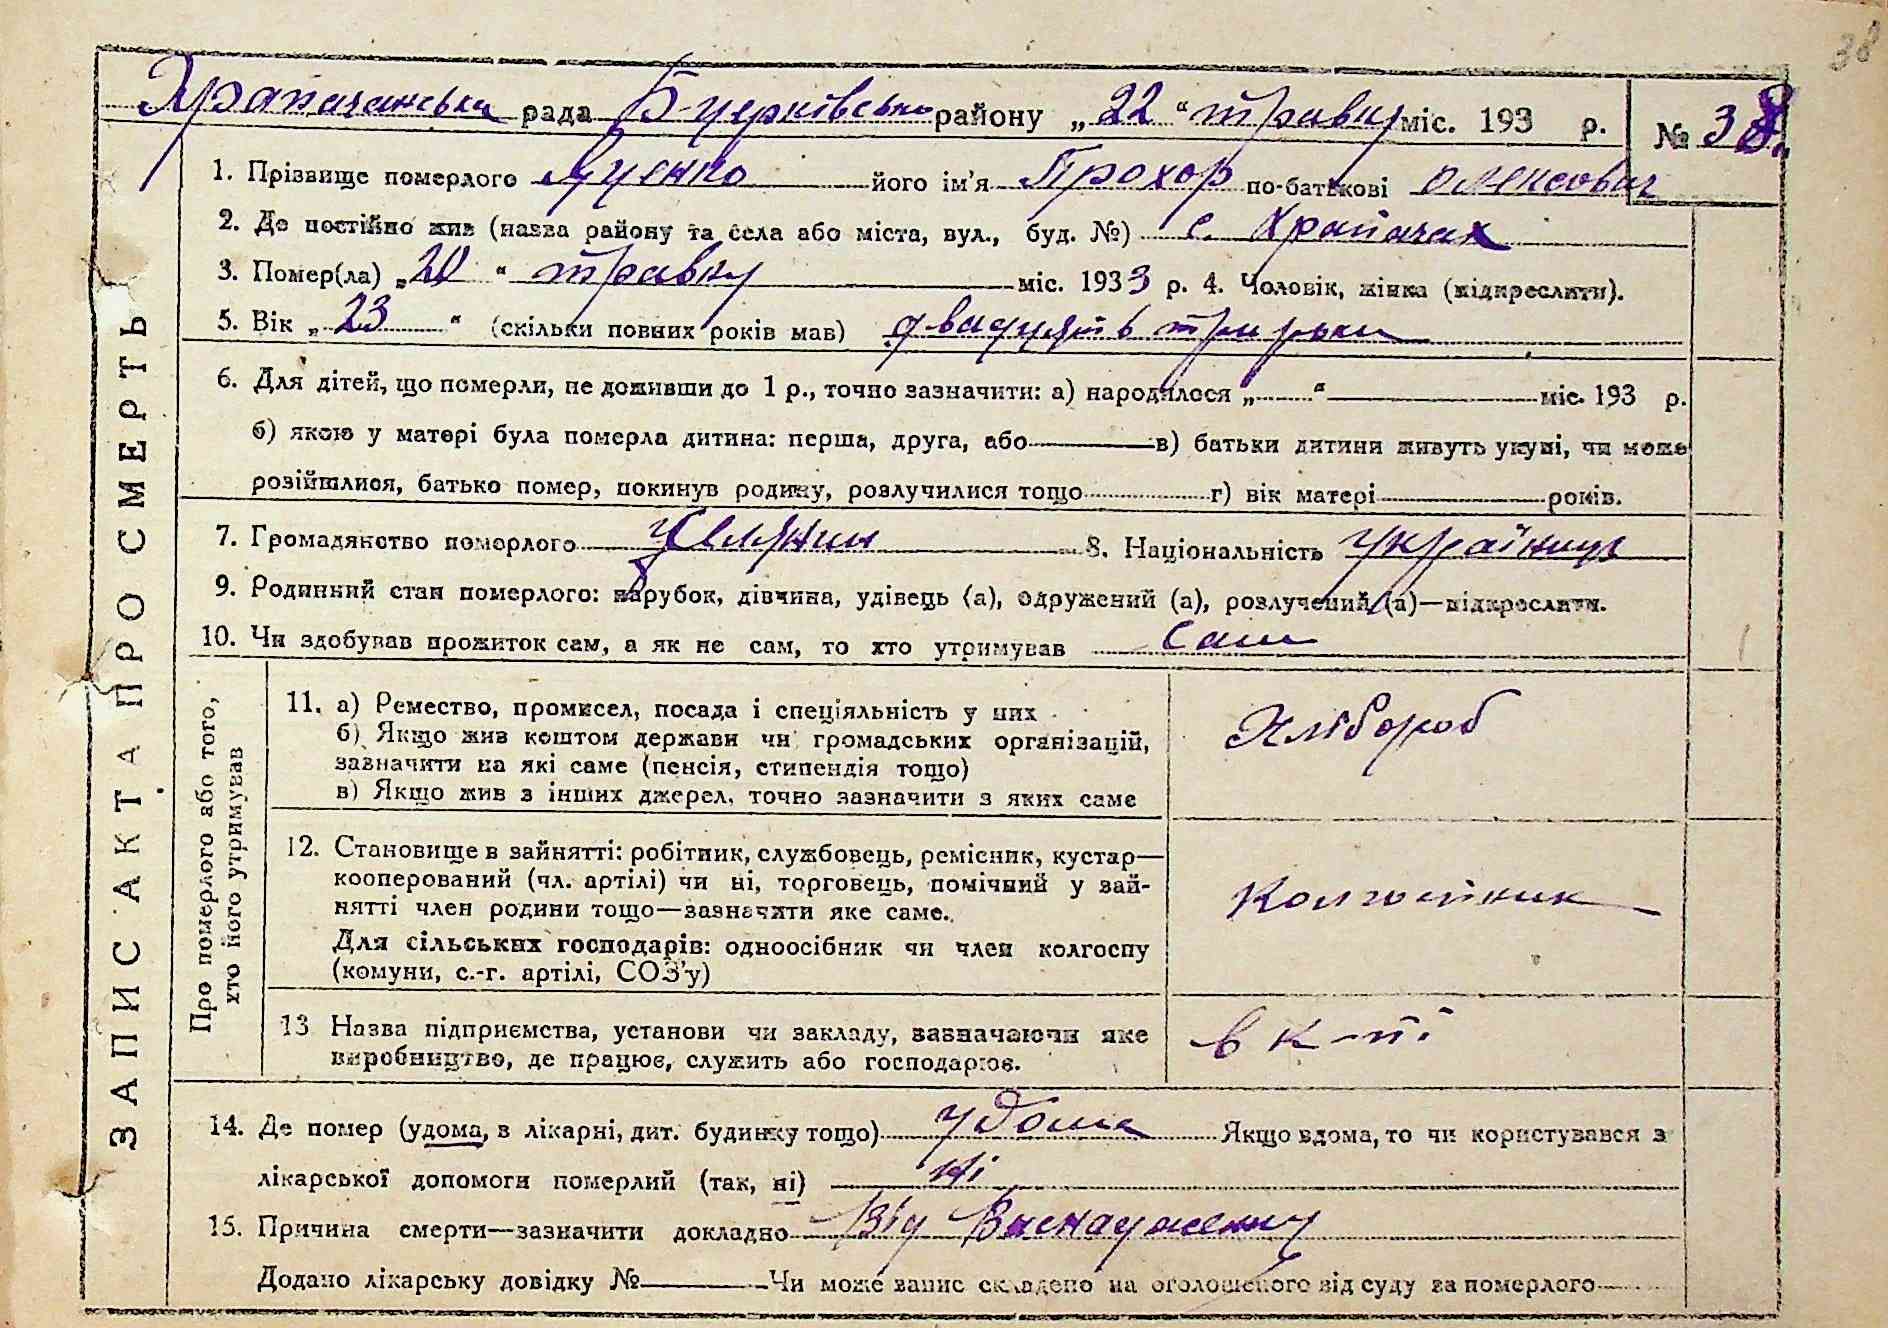 38
Храпачанська рада Б-Церківського району „22“ травня міс. 193 р. № 38.
1. Прізвище померлого Луценко його ім'я Прохор по-батькові Олексович
2. Де постійно жив (назва району та села або міста, вул., буд. №) с. Храпачах
3. Помер(ла) „20“ травня міс. 1933 р. 4. Чоловік, жінка (підкреслити).
5. Вік „23“ (скільки повних років мав) двадцять три роки
6. Для дітей, що померли, не доживши до 1 р., точно зазначити: а) народилося „ “ міс. 193 р.
б) якою у матері була померла дитина: перша, друга, або в) батьки дитини живуть укупі, чи може
розійшлися, батько помер, покинув родину, розлучилися тощо г) вік матері років.
7. Громадянство померлого 8. Національність українець
9. Родинний стан померлого: парубок, дівчина, удівець (а), одружений (а), розлучений (а)—підкреслити.
10. Чи здобував прожиток сам, а як не сам, то хто утримував сам
ЗАПИС АКТА ПРО СМЕРТЬ
Про померлого або того,
хто його утримував
11. а) Ремество, промисел, посада і спеціяльність у них Хлібороб
б) Якщо жив коштом держави чи громадських організацій,
зазначити на які саме (пенсія, стипендія тощо)
в) Якщо жив з інших джерел, точно зазначити з яких саме
12. Становище в зайнятті: робітник, службовець, ремісник, кустар—
кооперований (чл. артілі) чи ні, торговець, помічний у зай-
нятті член родини тощо—зазначити яке саме. Колгоспник
Для сільських господарів: одноосібник чи член колгоспу
(комуни, с.-г. артілі, СОЗ'у)
13 Назва підприємства, установи чи закладу, зазначаючи яке в к-пі
виробництво, де працює, служить або господарює.
14. Де помер (удома, в лікарні, дит. будинку тощо) удома Якщо вдома, то чи користувався з
лікарської допомоги померлий (так, ні) ні
15. Причина смерти—зазначити докладно Від Виснаження
Додано лікарську довідку № Чи може запис складено на оголошеного від суду за померлого